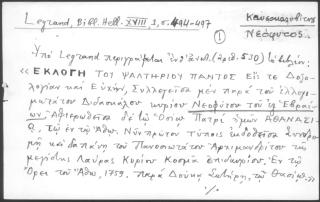 Legrand, Bibl. Hell. XVIII, 1, σ. 494-497
Καυσοκαλυβίτης
Νεόφυτος
①
Ὑπὸ Legrand περιγράφεται ἐνθ' ἀνωτ. (ἀριθ. 530) τὸ βιβλίον:
«ΕΚΛΟΓΗ ΤΟΥ ΨΑΛΤΗΡΙΟΥ ΠΑΝΤΟΣ Εἴς τε Δοξο-
λογίαν καὶ Εὐχήν, Συλλεγεῖσα μὲν παρὰ τοῦ ἐλλογι-
μωτάτου Διδασκάλου κυρίου Νεοφύτου τοῦ ἐξ Ἑβραί-
ων. Ἀφιερωθεῖσα δὲ τῷ Ὁσίῳ Πατρὶ ἡμῶν ΑΘΑΝΑΣΙ-
ΩΙ, τῷ ἐν τῷ Ἄθῳ. Νῦν πρῶτον τύποις ἐκδοθεῖσα Συνδρο-
μῇ καὶ δαπάνῃ τοῦ Πανοσιωτάτου Ἀρχιμανδρίτου τῆς
μεγίστης Λαύρας Κυρίου Κοσμᾶ Ἐπιδαυρίου. Ἐν τῷ
Ὄρει τοῦ Ἄθω, 1759. Παρὰ Δούκᾳ Σωτήρῃ τῷ Θασίῳ.»